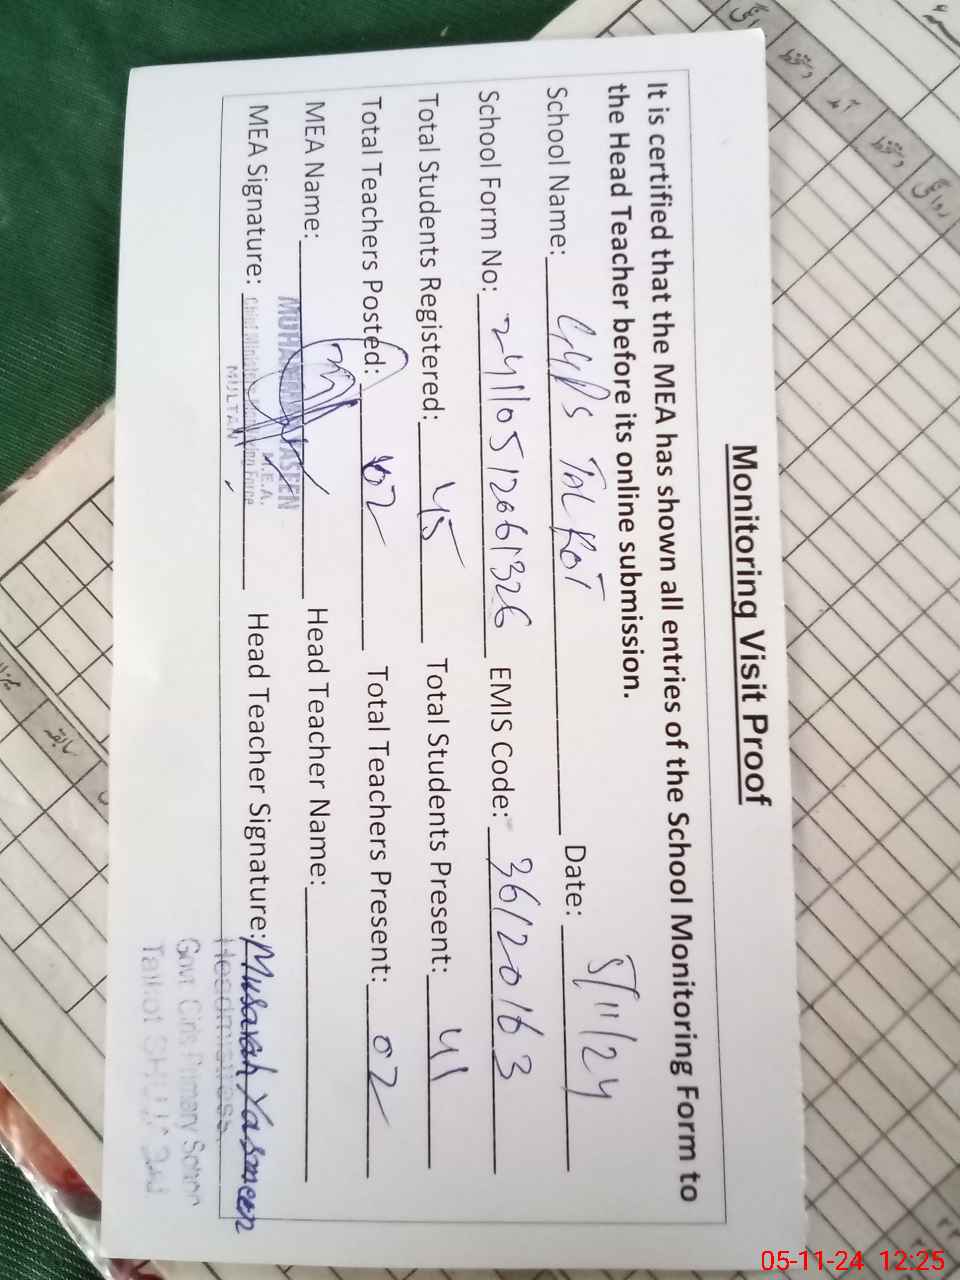 Monitoring Visit Proof
It is certified that the MEA has shown all entries of the School Monitoring Form to
the Head Teacher before its online submission.
School Name: GGPS Tal Kot Date: 5/11/24
School Form No: 241105120661326 EMIS Code: 36120163
Total Students Registered: 45 Total Students Present: 41
Total Teachers Posted: 02 Total Teachers Present: 02
MEA Name: Head Teacher Name:
MUHAMMAD YASEEN
M.E.A.
MEA Signature: Head Teacher Signature: Musarah Yasmeen
Chief Minister Monitoring Force
MULTAN
Headmistress
Govt. Girls Primary School
Talkot
روانگی
دستخط
آمد
دستخط
روانگی
سابقہ
05-11-24 12:25